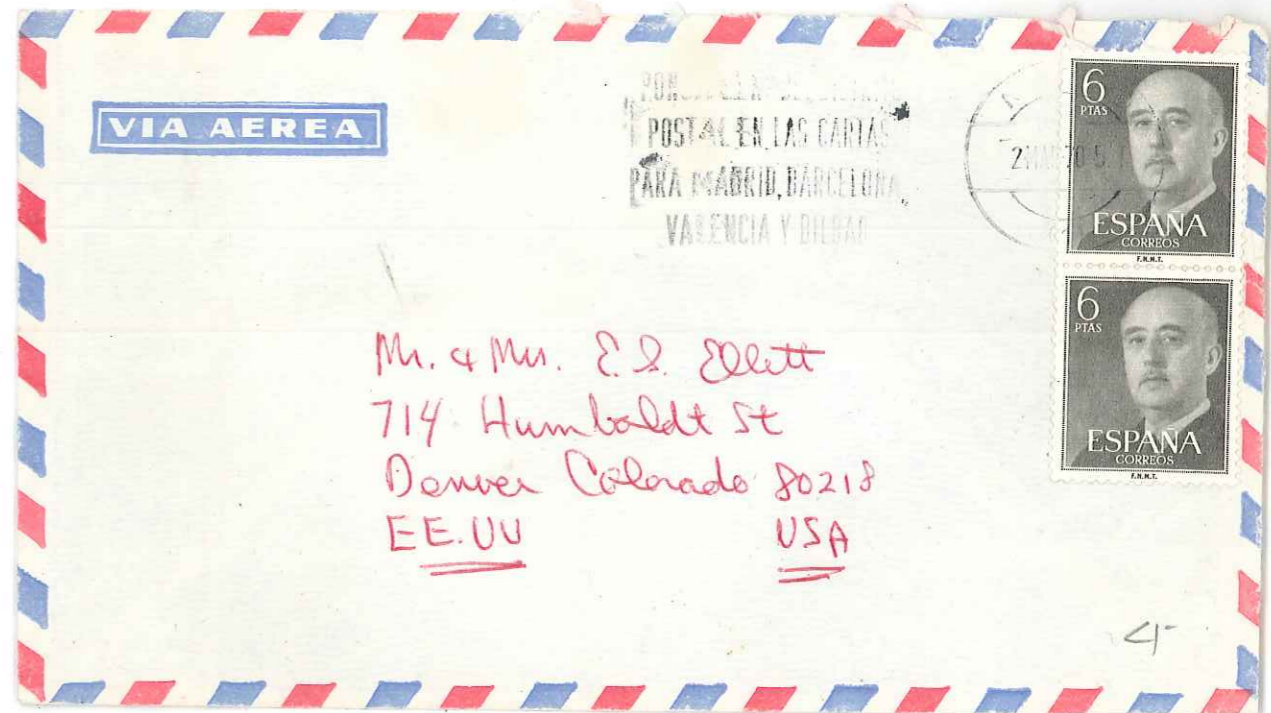 VIA AEREA
POSTAL EN LAS CARTAS
PARA MADRID, BARCELONA,
VALENCIA Y BILBAO
2 MAR 70
6
PTAS
ESPAÑA
CORREOS
F.N.M.T.
6
PTAS
ESPAÑA
CORREOS
F.N.M.T.
Mr. & Mrs. E.S. Ellett
714 Humboldt St
Denver Colorado 80218
EE.UU USA